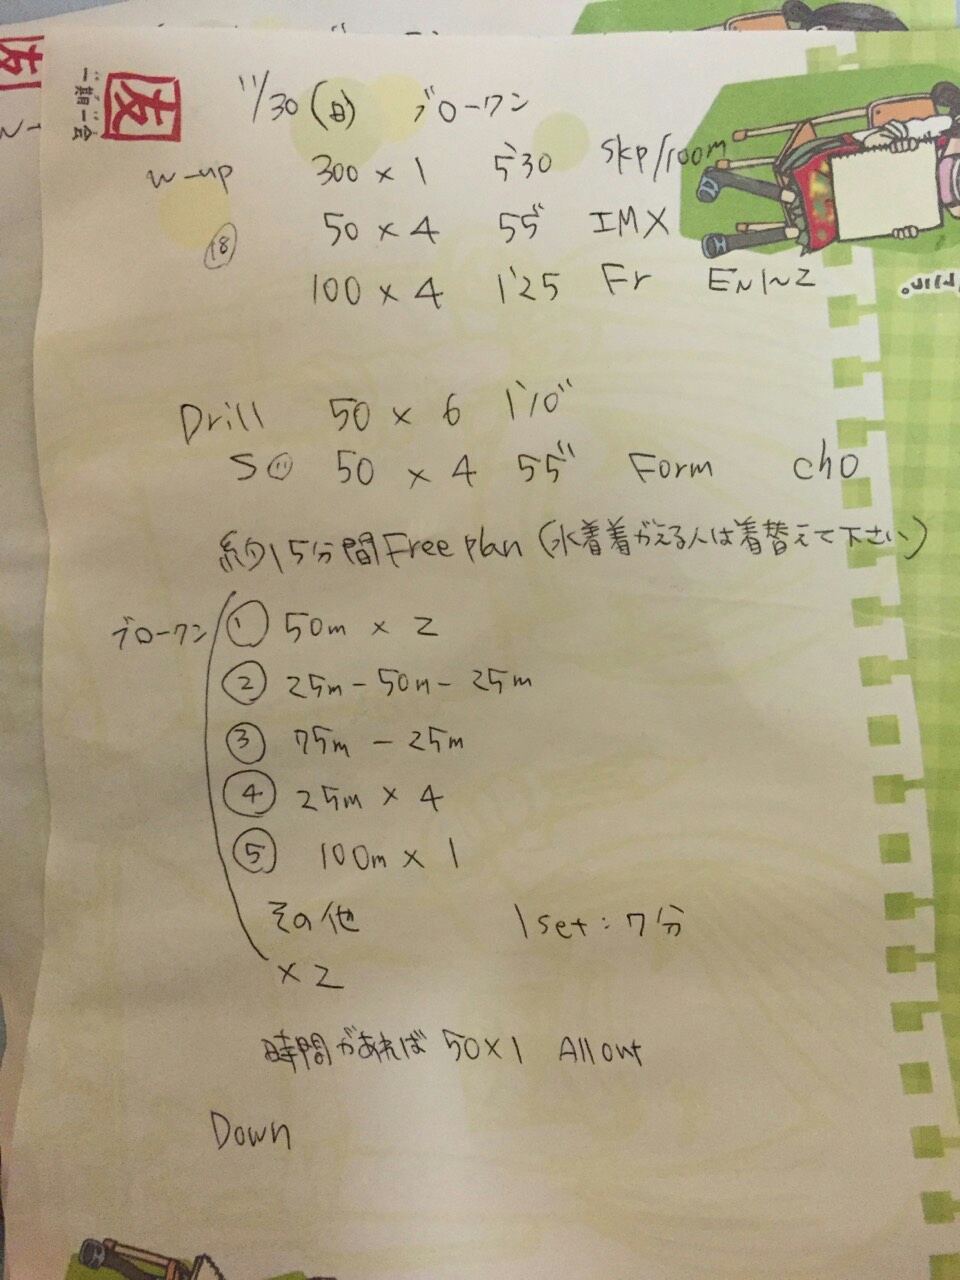 友
一期一会
11/30(日) ブロークン
W-up 300×1 5'30 skp/room
50×4 55" IMX
⑱
100×4 1'25 Fr EN1~2
Drill 50×6 1'10"
S 50×4 55" Form cho
約15分間Free plan(水着着がえる人は着替えて下さい)
ブロークン ① 50m×2
② 25m-50m-25m
③ 75m-25m
④ 25m×4
⑤ 100m×1
その他 1set:7分
×2
時間があれば 50×1 All out
Down